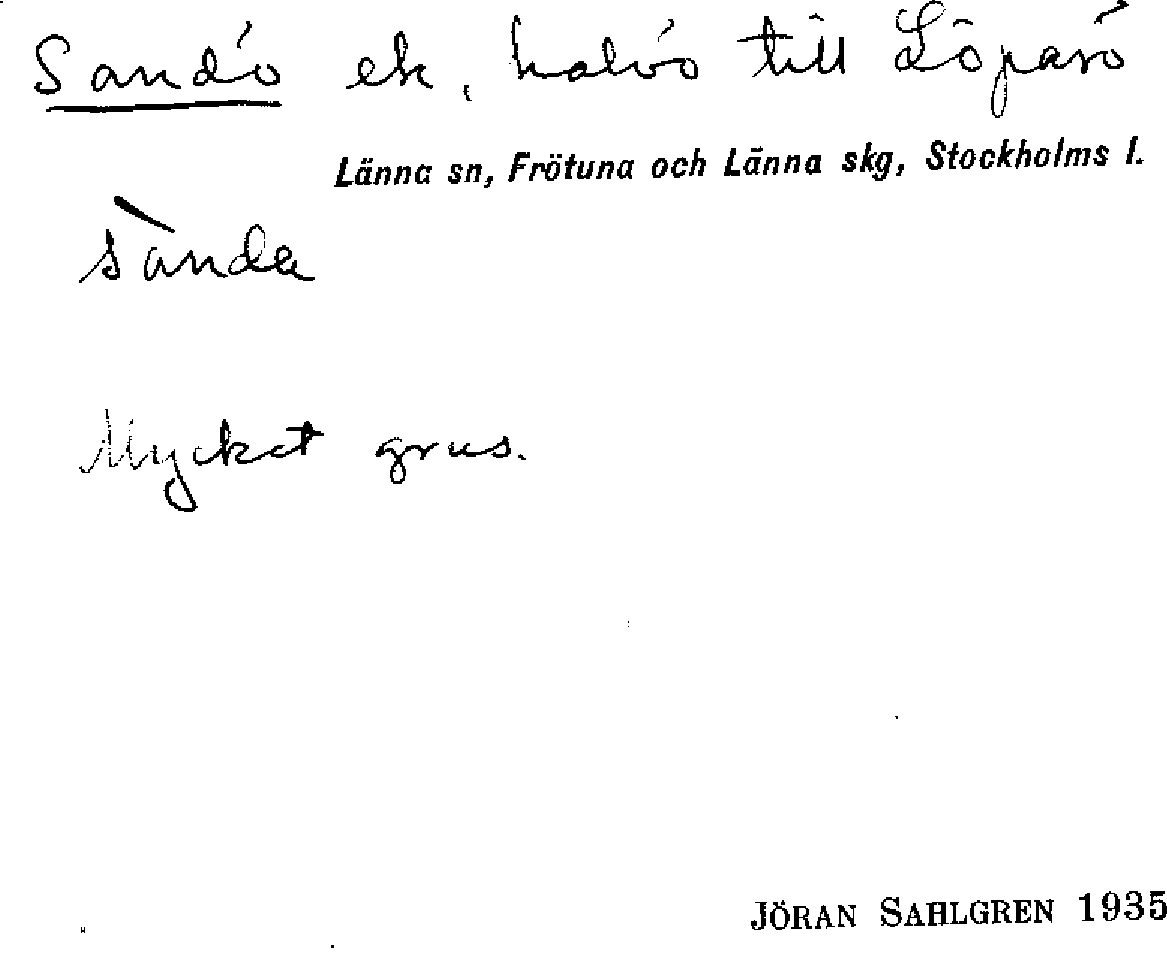 Sandö ek, halvö till Löparö
Länna sn, Frötuna och Länna skg, Stockholms l.
sànda
Mycket grus.
JÖRAN SAHLGREN 1935